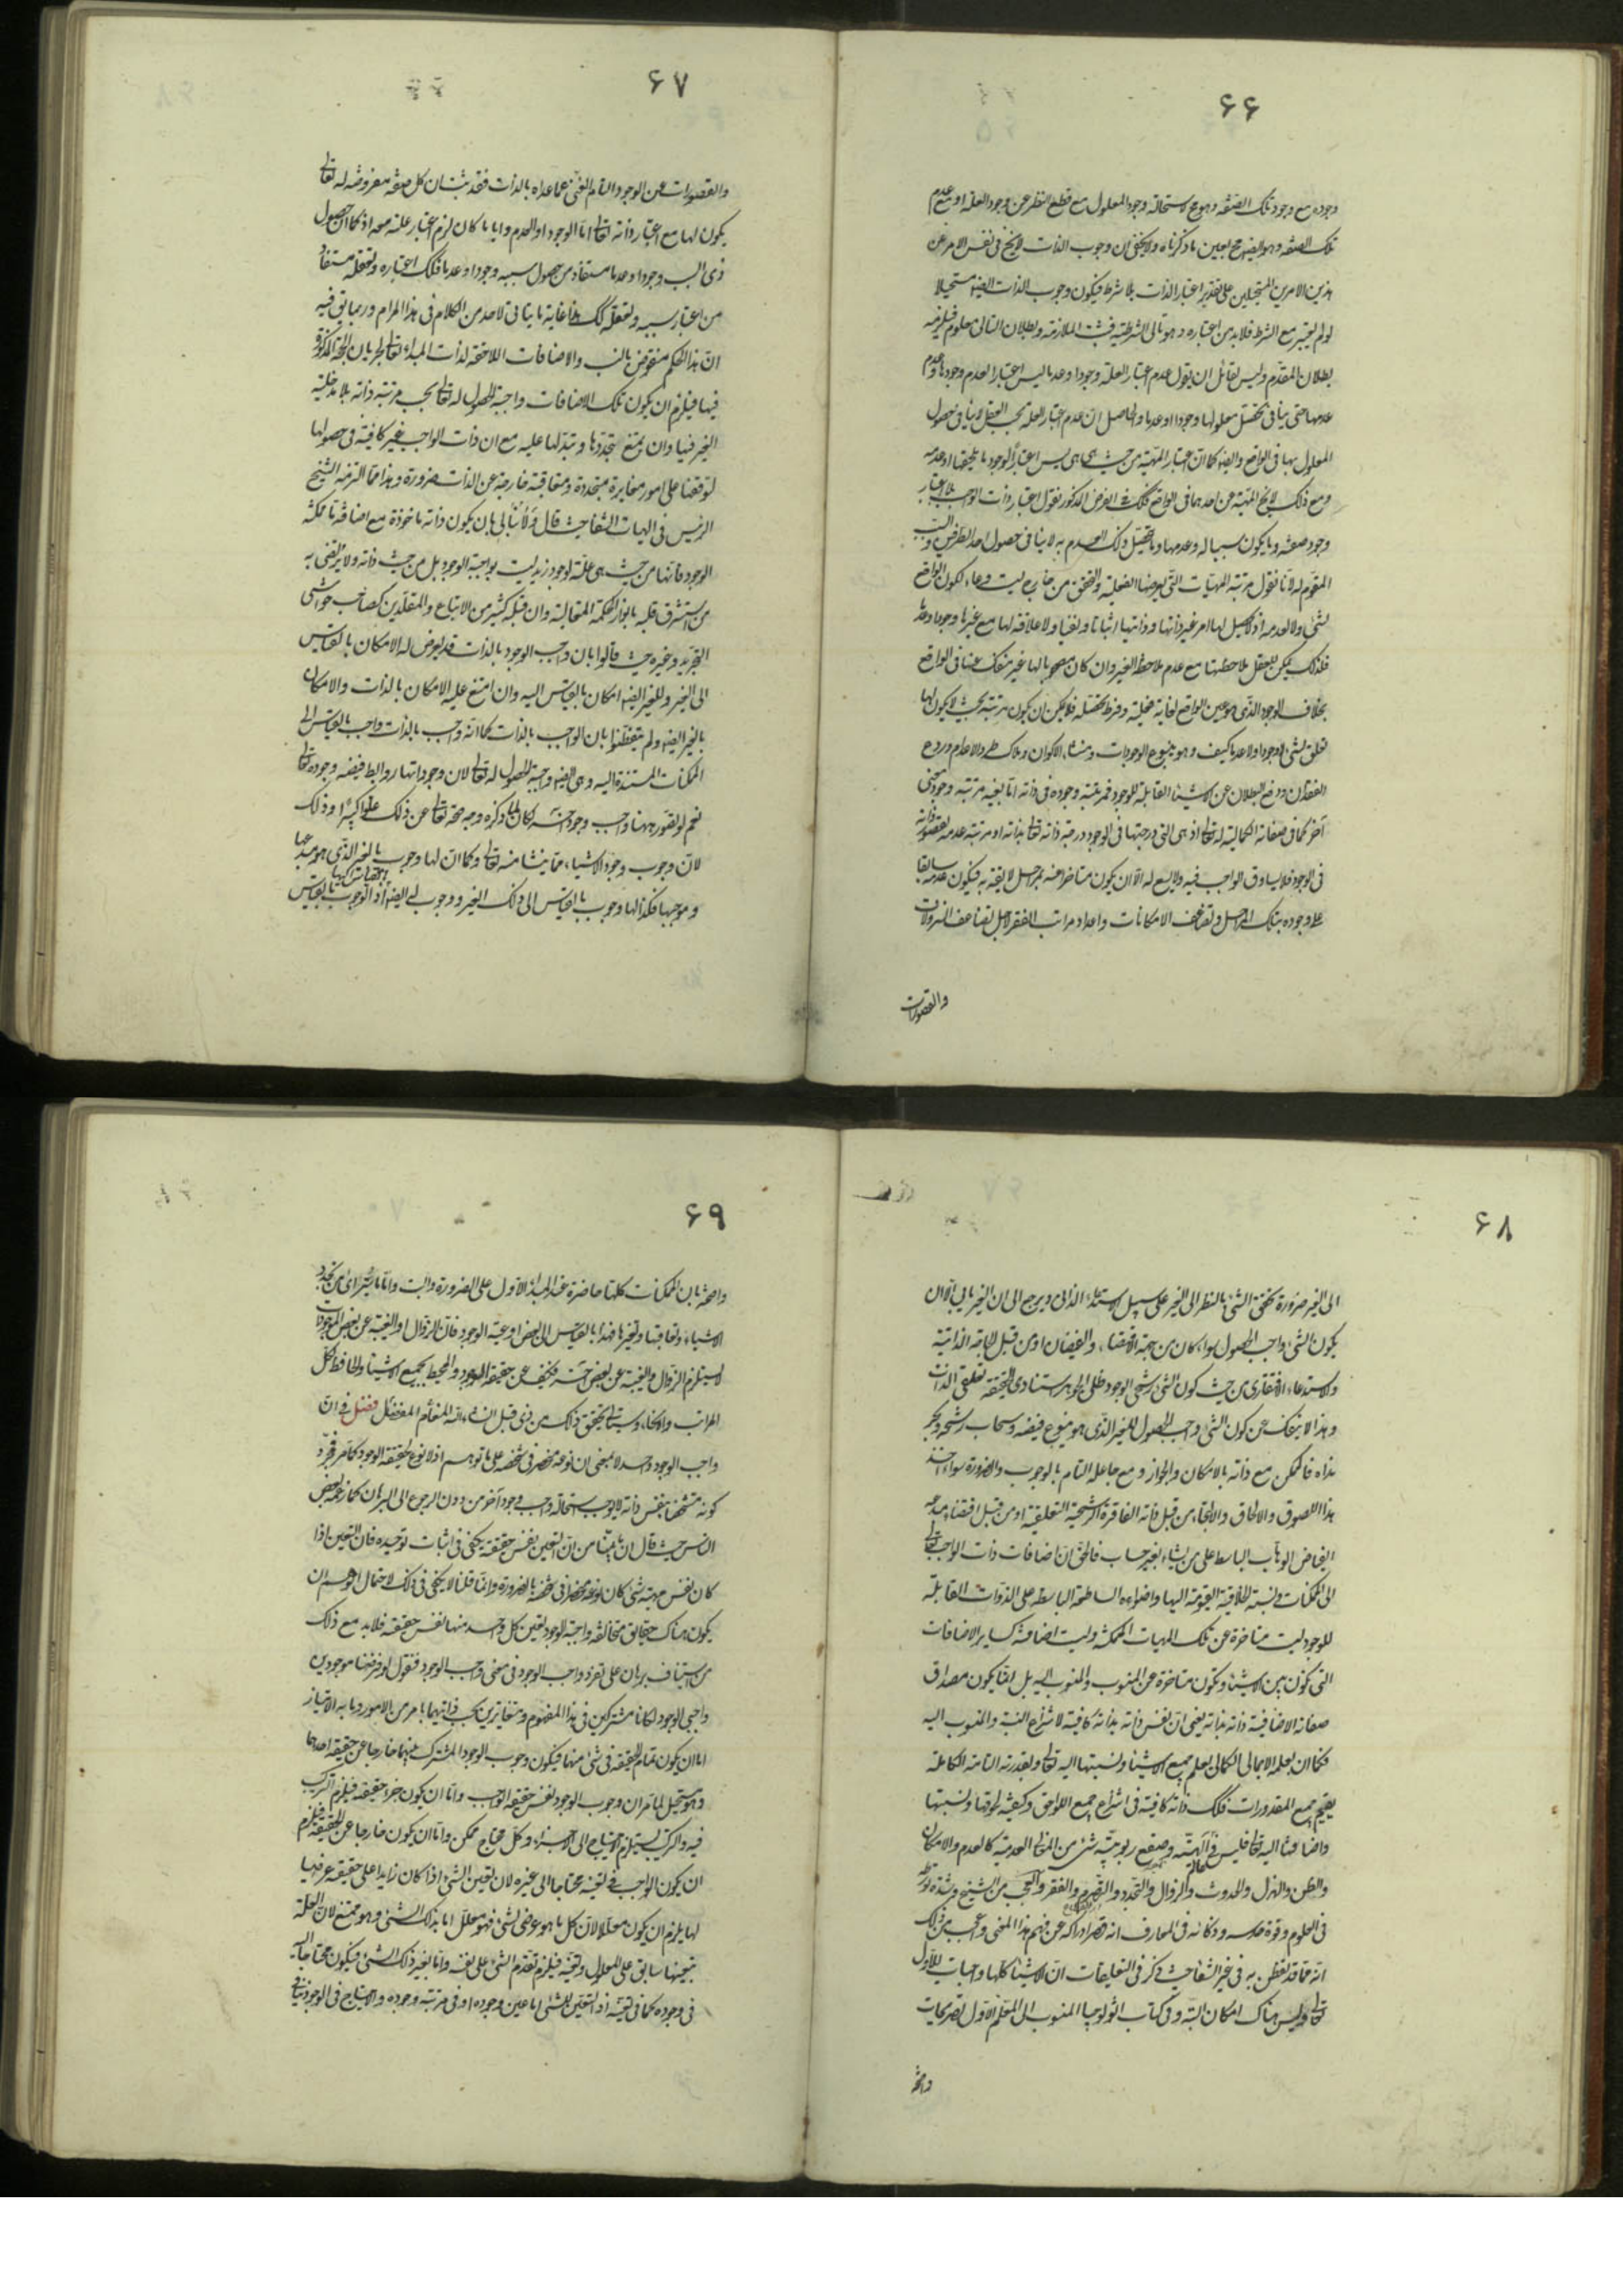 ۶۶
وجوده مع وجود تلك الصفة وهو مح لاستحالة وجود المعلول مع قطع النظر عن وجود العلة او مع عدم
تلك الصفة وهو ايضا مح بعين ما ذكرناه ولا يخفى ان وجوب الذات لا يخ في نفس الامر عن
هذين الامرين المستحيلين على تقدير اعتبار الذات بلا شرط فيكون وجوب الذات ايضا مستحيلا
لو لم يعتبر مع الشرط فلابد من اعتباره وهو تالى الشرطية فثبت الملازمة وبطلان التالى معلوم فيلزمه
بطلان المقدم وليس لقائل ان يقول عدم اعتبار العلة وجودا وعدما ليس اعتبارا لعدم وجودها وعدم
عدمها حتى ينافى تحصل معلولها وجودا او عدما والحاصل ان عدم اعتبار العلة بحسب العقل لا ينافى حصول
المعلول بها فى الواقع وايضا كما ان اعتبار المهية من حيث هى هى ليس اعتبارا لوجود ما يلحقها او عدمه
ومع ذلك لا يخ المهية عن احدهما فى الواقع فكذلك فى الفرض المذكور نقول اعتبار ذات الواجب بلا اعتبار
وجود صفة وما يكون سببا له وعدمها وما تحصل ذلك العدم به لا ينافى حصول احد الطرفين والسبب
المقوم له لانا نقول مرتبة المهيات التى يعرضها الفعلية والتحقق من خارج ليست وعاء لكون الواقع
لشئ ولا لعدمه اذ لا تحصيل لها امر غير ذاتها وذاتيها اثباتا ونفيا ولا علاقة لها مع غيرها وجودا وعدما
فلذلك يمكن للعقل ملاحظتها مع عدم ملاحظة الغير وان كان مصحوبا لها غير منفك عنها فى الواقع
بخلاف الوجود الذى هو عين الواقع لغاية فعليته وفرط تحصله فلا يمكن ان يكون مرتبته بحيث لا يكون لها
تعلق بشئ لا وجودا ولا عدما كيف وهو ينبوع الوجودات ومنشاء الاكوان وملاك طرد الاعدام وردع
الفقدان ودفع البطلان عن الاشياء القابلة للوجود فمرتبة وجوده فى ذاته اما بعينه مرتبة وجود شئ
آخر كما فى صفاته الكمالية له تعالى اذ هى التى درجتها فى الوجود درجة ذاته تعالى بذاته او مرتبة عدمه لقصور ذاته
فى الوجود فلا يساوق الواجب فيه ولا يسع له الا ان يكون متاخرا عنه بمراحل لايقة به فيكون عدمه سابقا
على وجوده بتلك المراحل وتضاعف الامكانات واعداد مراتب الفقر لاجل تضاعف النزولات
والقصورات
۶۷
والقصورات عن الوجود التام الغنى عما عداه بالذات فقد ثبت ان كل صفة مفروضة له تعالى
يكون لها مع اعتبار ذاته تعالى اما الوجود او العدم وايا ما كان لزم اعتبار علته معه اذ كما ان حصول
ذى السبب وجودا وعدما مستفاد من حصول سببه وجودا وعدما فكذلك اعتباره وتعقله مستفاد
من اعتبار سببه وتعقله كك هذا غاية ما يتاتى لاحد من الكلام فى هذا المرام وربما يق فيه
ان هذا الحكم منقوض بالنسب والاضافات اللاحقة لذات المبداء تعالى لجريان الحجة المذكورة
فيها فيلزم ان يكون تلك الاضافات واجبة الحصول له تعالى بحسب مرتبة ذاته بلا مدخلية
الغير فيها وان يمتنع تجددها وتبدلها عليه مع ان ذات الواجب غير كافية فى حصولها
لتوقفها على امور مغايرة متجددة ومتعاقبة خارجة عن الذات ضرورة وهذا مما التزمه الشيخ
الرئيس فى الهيات الشفا حيث قال ولا نبالى بان يكون ذاته ماخوذة مع اضافة ما ممكنة
الوجود فانها من حيث هى علة لوجود زيد ليست بواجبة الوجود بل من حيث ذاته ولا يرتضى به
من استشرق قلبه بانوار الحكمة المتعالية وان قبله كثير من الاتباع والمقلدين كصاحب حواشى
التجريد وغيره حيث قالوا بان واجب الوجود بالذات قد يعرض له الامكان بالقياس
الى الغير وللغير ايضا امكان بالقياس اليه وان امتنع عليه الامكان بالذات والامكان
بالغير ايضا ولم يتفطنوا بان الواجب بالذات كما انه واجب بالذات واجب بالقياس الى
الممكنات المستندة اليه وهى ايضا واجبة الحصول له تعالى لان وجوداتها روابط فيضه وجوده تعالى
نعم لو تصور ههنا واجب وجود آخر لكان لما ذكره وجه صحة تعالى عن ذلك علوا كبيرا وذلك
لان وجوب وجود الاشياء مما ينشا منه تعالى وكما ان لها وجوب بالغير الذى هو مبدعها
وموجبها فكذا لها وجوب بالقياس الى ذلك الغير ووجوب له ايضا بالقياس اليها اذ الوجوب بالقياس
۶۸
الى الغير ضرورة تحقق الشئ بالنظر الى الغير على سبيل الاستدعاء الذاتى ويرجع الى ان الغير يابى الا ان
يكون الشئ واجب الحصول سواء كان من جهة الاقتضاء والفيضان او من قبل الحاجة الذاتية
والاستدعاء الافتقارى من حيث كون الشئ رشحى الوجود ظلى الجوهر استنادى الحقيقة تعلقى الذات
وهذا لا ينفك عن كون الشئ واجب الحصول للغير الذى هو ينبوع فيضه وسحاب رشحه وبحر
نداه فالممكن مع ذاته بالامكان والجواز ومع جاعله التام بالوجوب والضرورة سواء اخذ
هذا اللصوق والالحاق والالتجاء من قبل ذاته الفاقرة الرشحية التعلقية او من قبل اقتضاء مبدعه
الفياض الوهاب الباسط على من يشاء بغير حساب فالحق ان اضافات ذات الواجب تعالى
الى الممكنات ونسبته الخلاقية القيومية اليها واضواءه الساطعة الباسطة على الذوات القابلة
للوجود ليست متاخرة عن تلك المهيات الممكنة وليست اضافته كساير الاضافات
التى تكون بين الاشياء وتكون متاخرة عن المنسوب والمنسوب اليه بل انما يكون مصداق
صفاته الاضافية ذاته بذاته يعنى ان نفس ذاته بذاته كافية لانتزاع النسبة والمنسوب اليه
فكما ان بعلمه الاجمالى الكمالى يعلم جميع الاشياء ونسبتها اليه تعالى وبقدرته التامة الكاملة
يقيم جميع المقدورات فكذلك ذاته كافية فى انتزاع جميع اللواحق وكيفية لحوقها ونسبتها
واضافتها اليه تعالى فليس فى الهيته وصقع ربوبيته شئ من المعانى العدمية كالعدم والامكان
والظن والهزل والحدوث والزوال والتجدد والتصرم والفقر والعجب من الشيخ وشدة تورطه
فى العلوم وقوة حدسه وذكائه فى المعارف انه قصر ادراكه عن فهم هذا المعنى واعجب من ذلك
انه مما قد تفطن به فى غير الشفا حيث ذكر فى التعليقات ان الاشياء كلها واجبات للاول
تعالى وليس هناك امكان البتة وفى كتاب اثولوجيا المنسوب الى المعلم الاول تصريحات
واضحة
۶۹
واضحة بان الممكنات كلها حاضرة عند المبداء الاول على الضرورة والبت واما ما يتراى من تجدد
الاشياء وتعاقبها وتغيرها فهذا بالقياس الى بعض اوعية الوجود فان الزوال او الغيبة عن بعض الموجودات
لا يستلزم الزوال والغيبة عن بعض آخر فكيف عن حقيقة الوجود والمحيط بجميع الاشياء والحافظ لكل
المراتب والانحاء وسياتى تحقيق ذلك من ذى قبل انشاء الله المنعام المفضل فصل فى ان
واجب الوجود واحد لا بمعنى ان نوعه منحصر فى شخصه على ما توهم اذ لا نوع لحقيقة الوجود كما مر فمجرد
كونه متشخصا بنفس ذاته لا يوجب استحالة واجب وجود آخر من دون الرجوع الى البرهان كما زعمه بعض
الناس حيث قال ان ما بينا من ان التعين نفس حقيقته يكفى فى اثبات توحيده فان التعين اذا
كان نفس مهية شئ كان نوعه منحصرا فى شخصه بالضرورة وانما قلنا لا يكفى فى ذلك لاحتمال الوهم ان
يكون هناك حقايق متخالفة واجبة الوجود لتعين كل واحد منها نفس حقيقته فلابد مع ذلك
من استيناف برهان على تفرد واجب الوجود فى معنى واجب الوجود فنقول لو فرضنا موجودين
واجبى الوجود لكانا مشتركين فى هذا المفهوم ومتغايرين بحسب ذاتيهما بامر من الامور وما به الامتياز
اما ان يكون تمام الحقيقة فى شئ منهما فيكون وجوب الوجود المشترك بينهما خارجا عن حقيقة احدهما
وهو مستحيل لما مر ان وجوب الوجود نفس حقيقة الواجب واما ان يكون جزء حقيقته فيلزم التركيب
فيه والتركيب يستلزم الاحتياج الى الاجزاء وكل محتاج ممكن واما ان يكون خارجا عن الحقيقة فيلزم
ان يكون الواجب فى تعينه محتاجا الى غيره لان تعين الشئ اذا كان زايدا على حقيقته عرضيا
لها يلزم ان يكون معللا لان كل ما هو عرضى لشئ فهو معلل اما بذلك الشئ وهو ممتنع لان العلة
بتعينها سابق على المعلول وتعينه فيلزم تقدم الشئ على نفسه واما بغير ذلك الشئ فيكون محتاجا اليه
فى وجوده كما فى تعينه اذ التعين للشئ اما عين وجوده او فى مرتبة وجوده والاحتياج فى الوجود ينافى